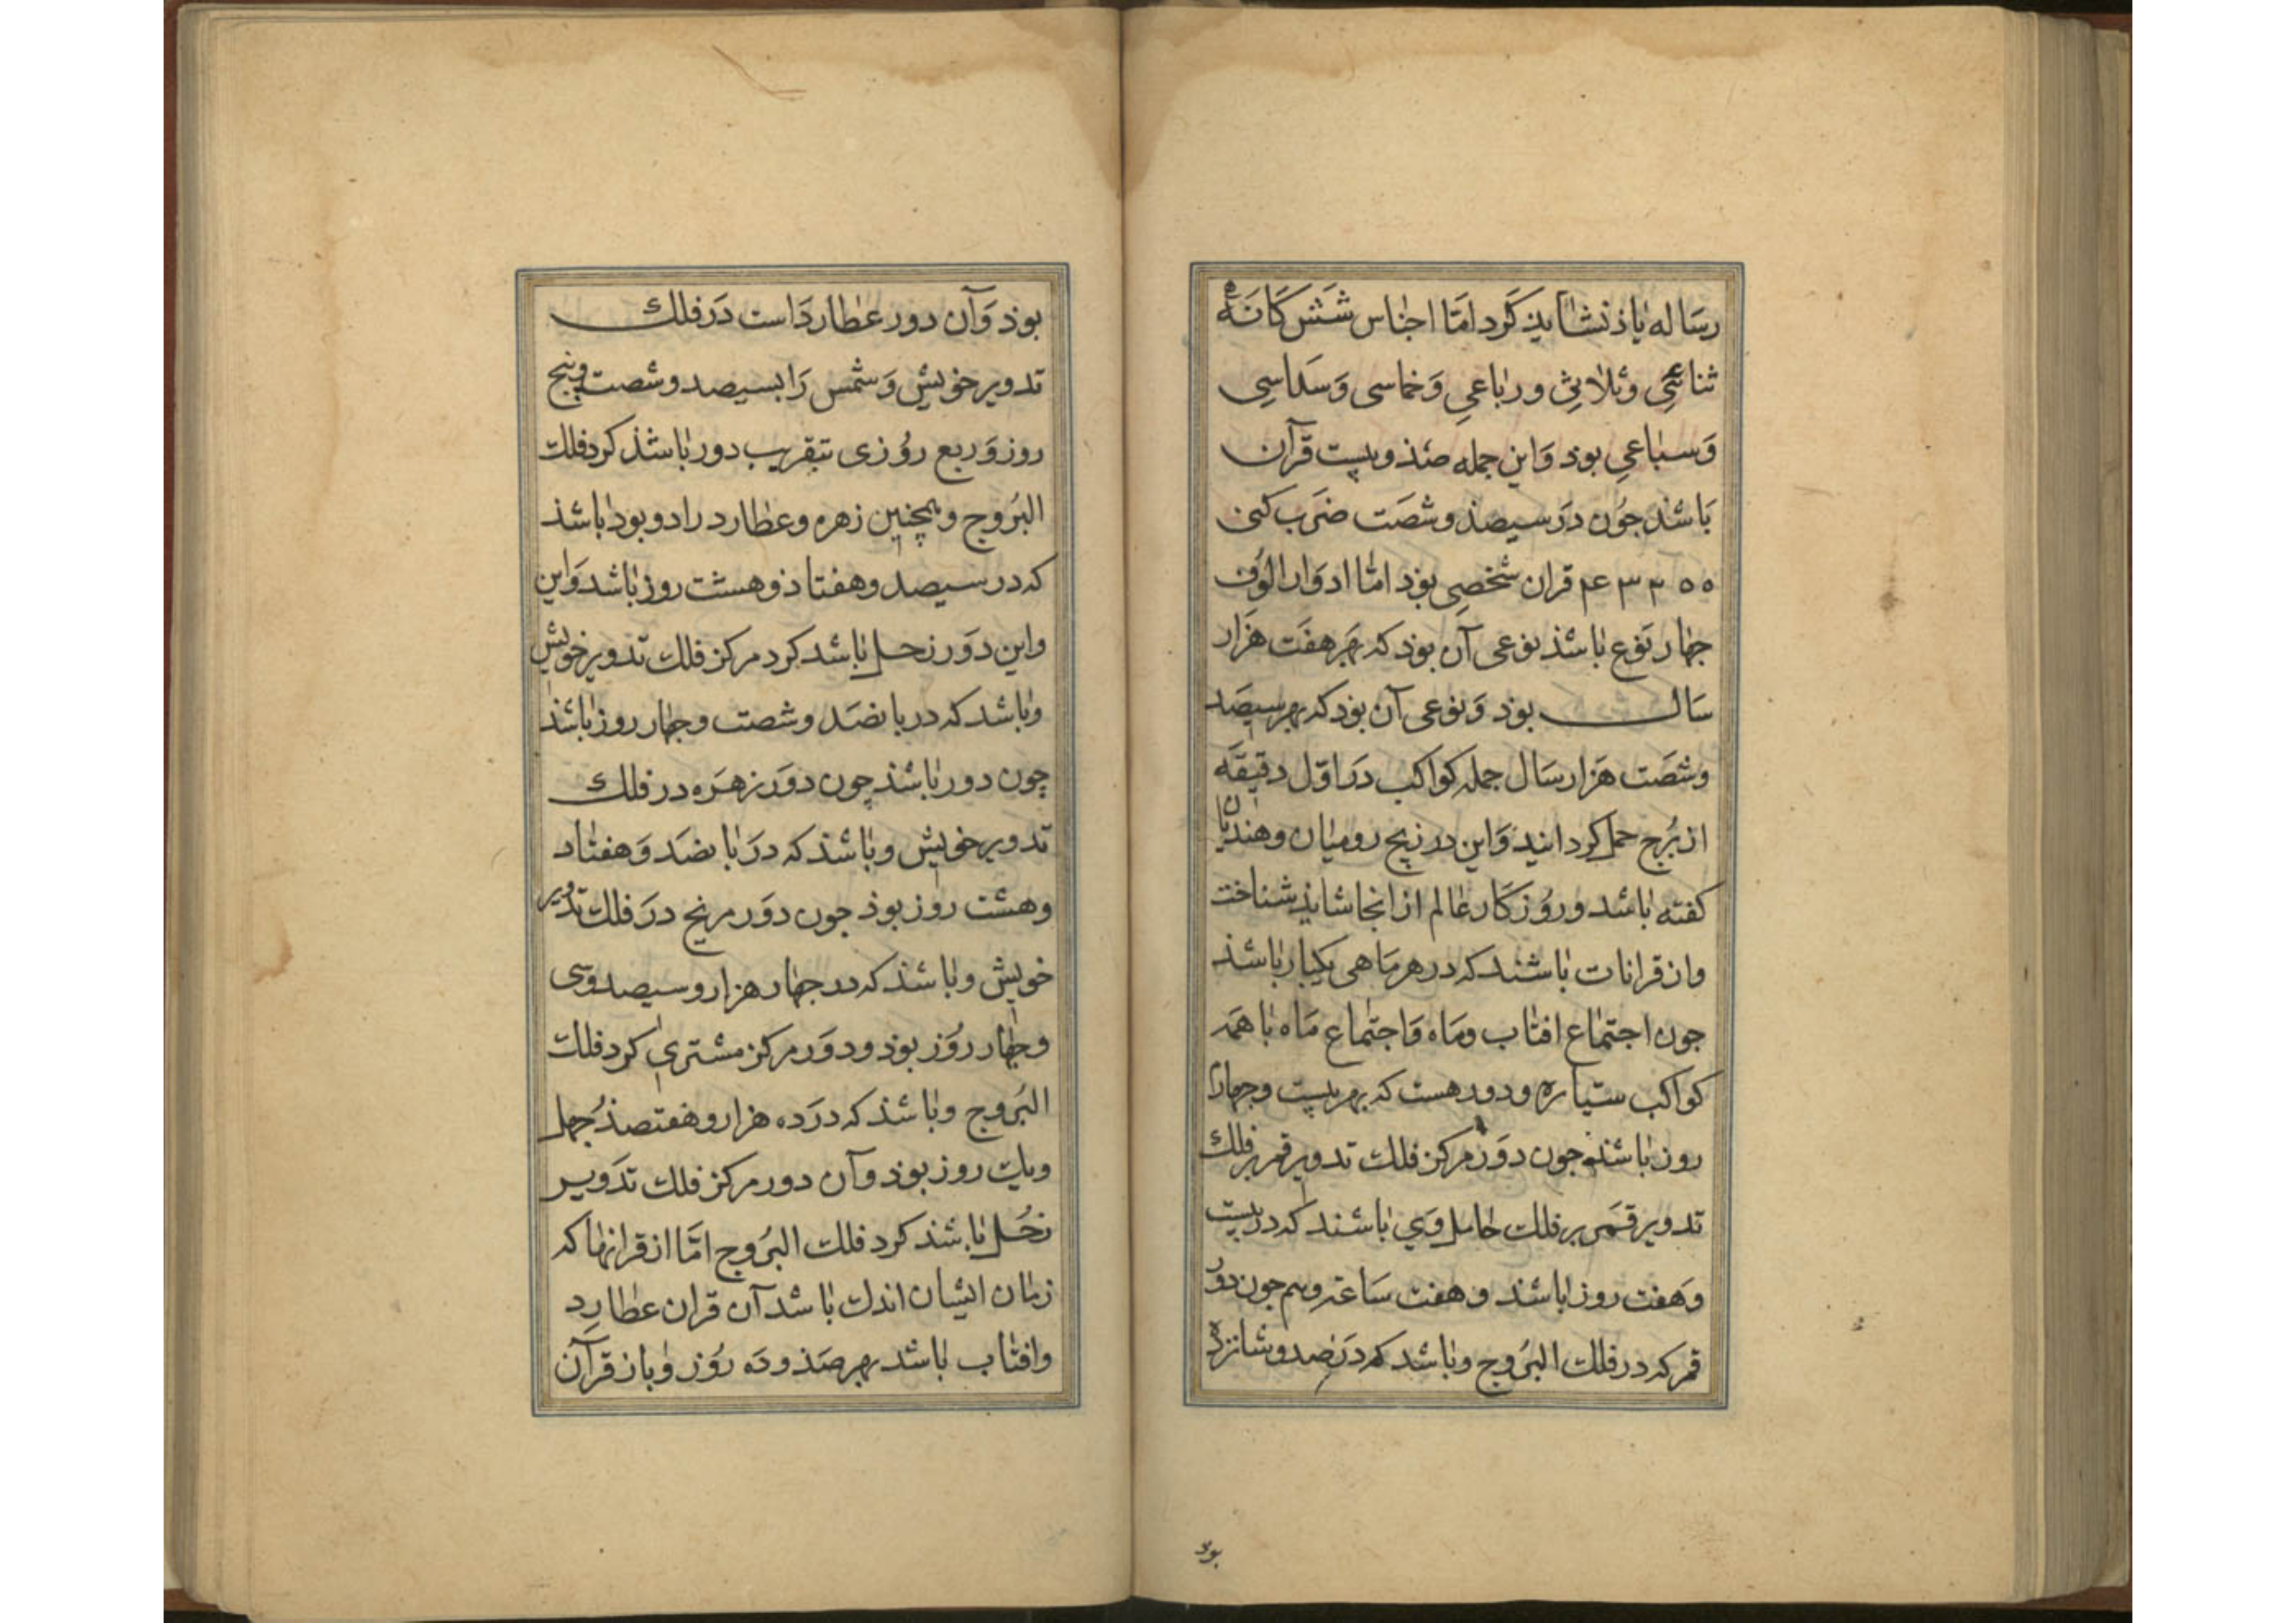 رساله یاذ نشاید کرد امّا اجناس شش کانه
ثنائیِ وثلاثیِ ورباعیِ وَخماسی وَسداسِی
وَسباعیِ بوذ وَاین جمله صَذ وبیست قرآن
بَاشذ جوُن دَرسیصذ وشصَت ضرَب کنی
۴۳۲۰۰ قران شخصِی بوذ امّا ادوَار الوُف
جهار نَوع باشذ نوعی آن بوذ که بهرهفَت هزَار
سَال بوذ وَنوعی آن بوذ که بهر سیصَد
وشصَت هَزار سَال جمله کواکب دَر اوّل دقیقَه
از بُرج حمل کرد اید وَاین در زیج رومیان وهندیان
کفته باشد وروُزکَار عالم از انجا شایذ شناخت
واز قرانات باشند که در هرمَاهی یکبار باشذ
جون اجتماع افتاب ومَاه وَاجتماع مَاه با همَه
کواکب ستیاره ودور هست که بهر بیست وجهار
روز باشذ جون دوَر مرکز فلك تدویر قمر بر فلك
تدویر قمَر بر فلك حامل وَی باشند که در بیست
وَهفت روز باشذ وهفت سَاعته وهم جون دور
قمر که در فلك البرُوج وباشد که دَرصد وشانزده
بوذ
بوذ وَآن دور عطاردَاست دَرفلك
تدویر خویش وَشمس رَا بسیصد وشصت وپنج
روز وَربع روُزی بتقریب دور باشذ کرد فلك
البرُوج وهمچنین زهره وعطارد را دو بود باشذ
که در سیصد وهفتاذ وهشت روز باشد وَاین
واین دوَر زحل باشد کرد مرکز فلك تدویر خویش
وباشد که در پانصَد وشصت وجهار روز باشذ
چون دور باشذ چون دوَر زهرَه در فلك
تدویر خویش وباشذ که دَر پانصَد وَهفتاد
وهشت روز بوذ جون دوَر مریخ دَر فلك تدویر
خویش وباشذ که در جهار هزار وسیصد وسی
وجهار روَز بوذ ودوَر مرکز مشتری کرد فلك
البرُوج وباشذ که دَر ده هزار وهفتصذ جهل
ویك روز بوذ وآن دور مرکز فلك تدَویر
زحُل باشذ کرد فلك البرُوج امَّا از قرانها که
زمان ایشان اندك باشد آن قران عطارِد
وافتاب باشد بهر صَذ ودَه روُز وباز قرآن